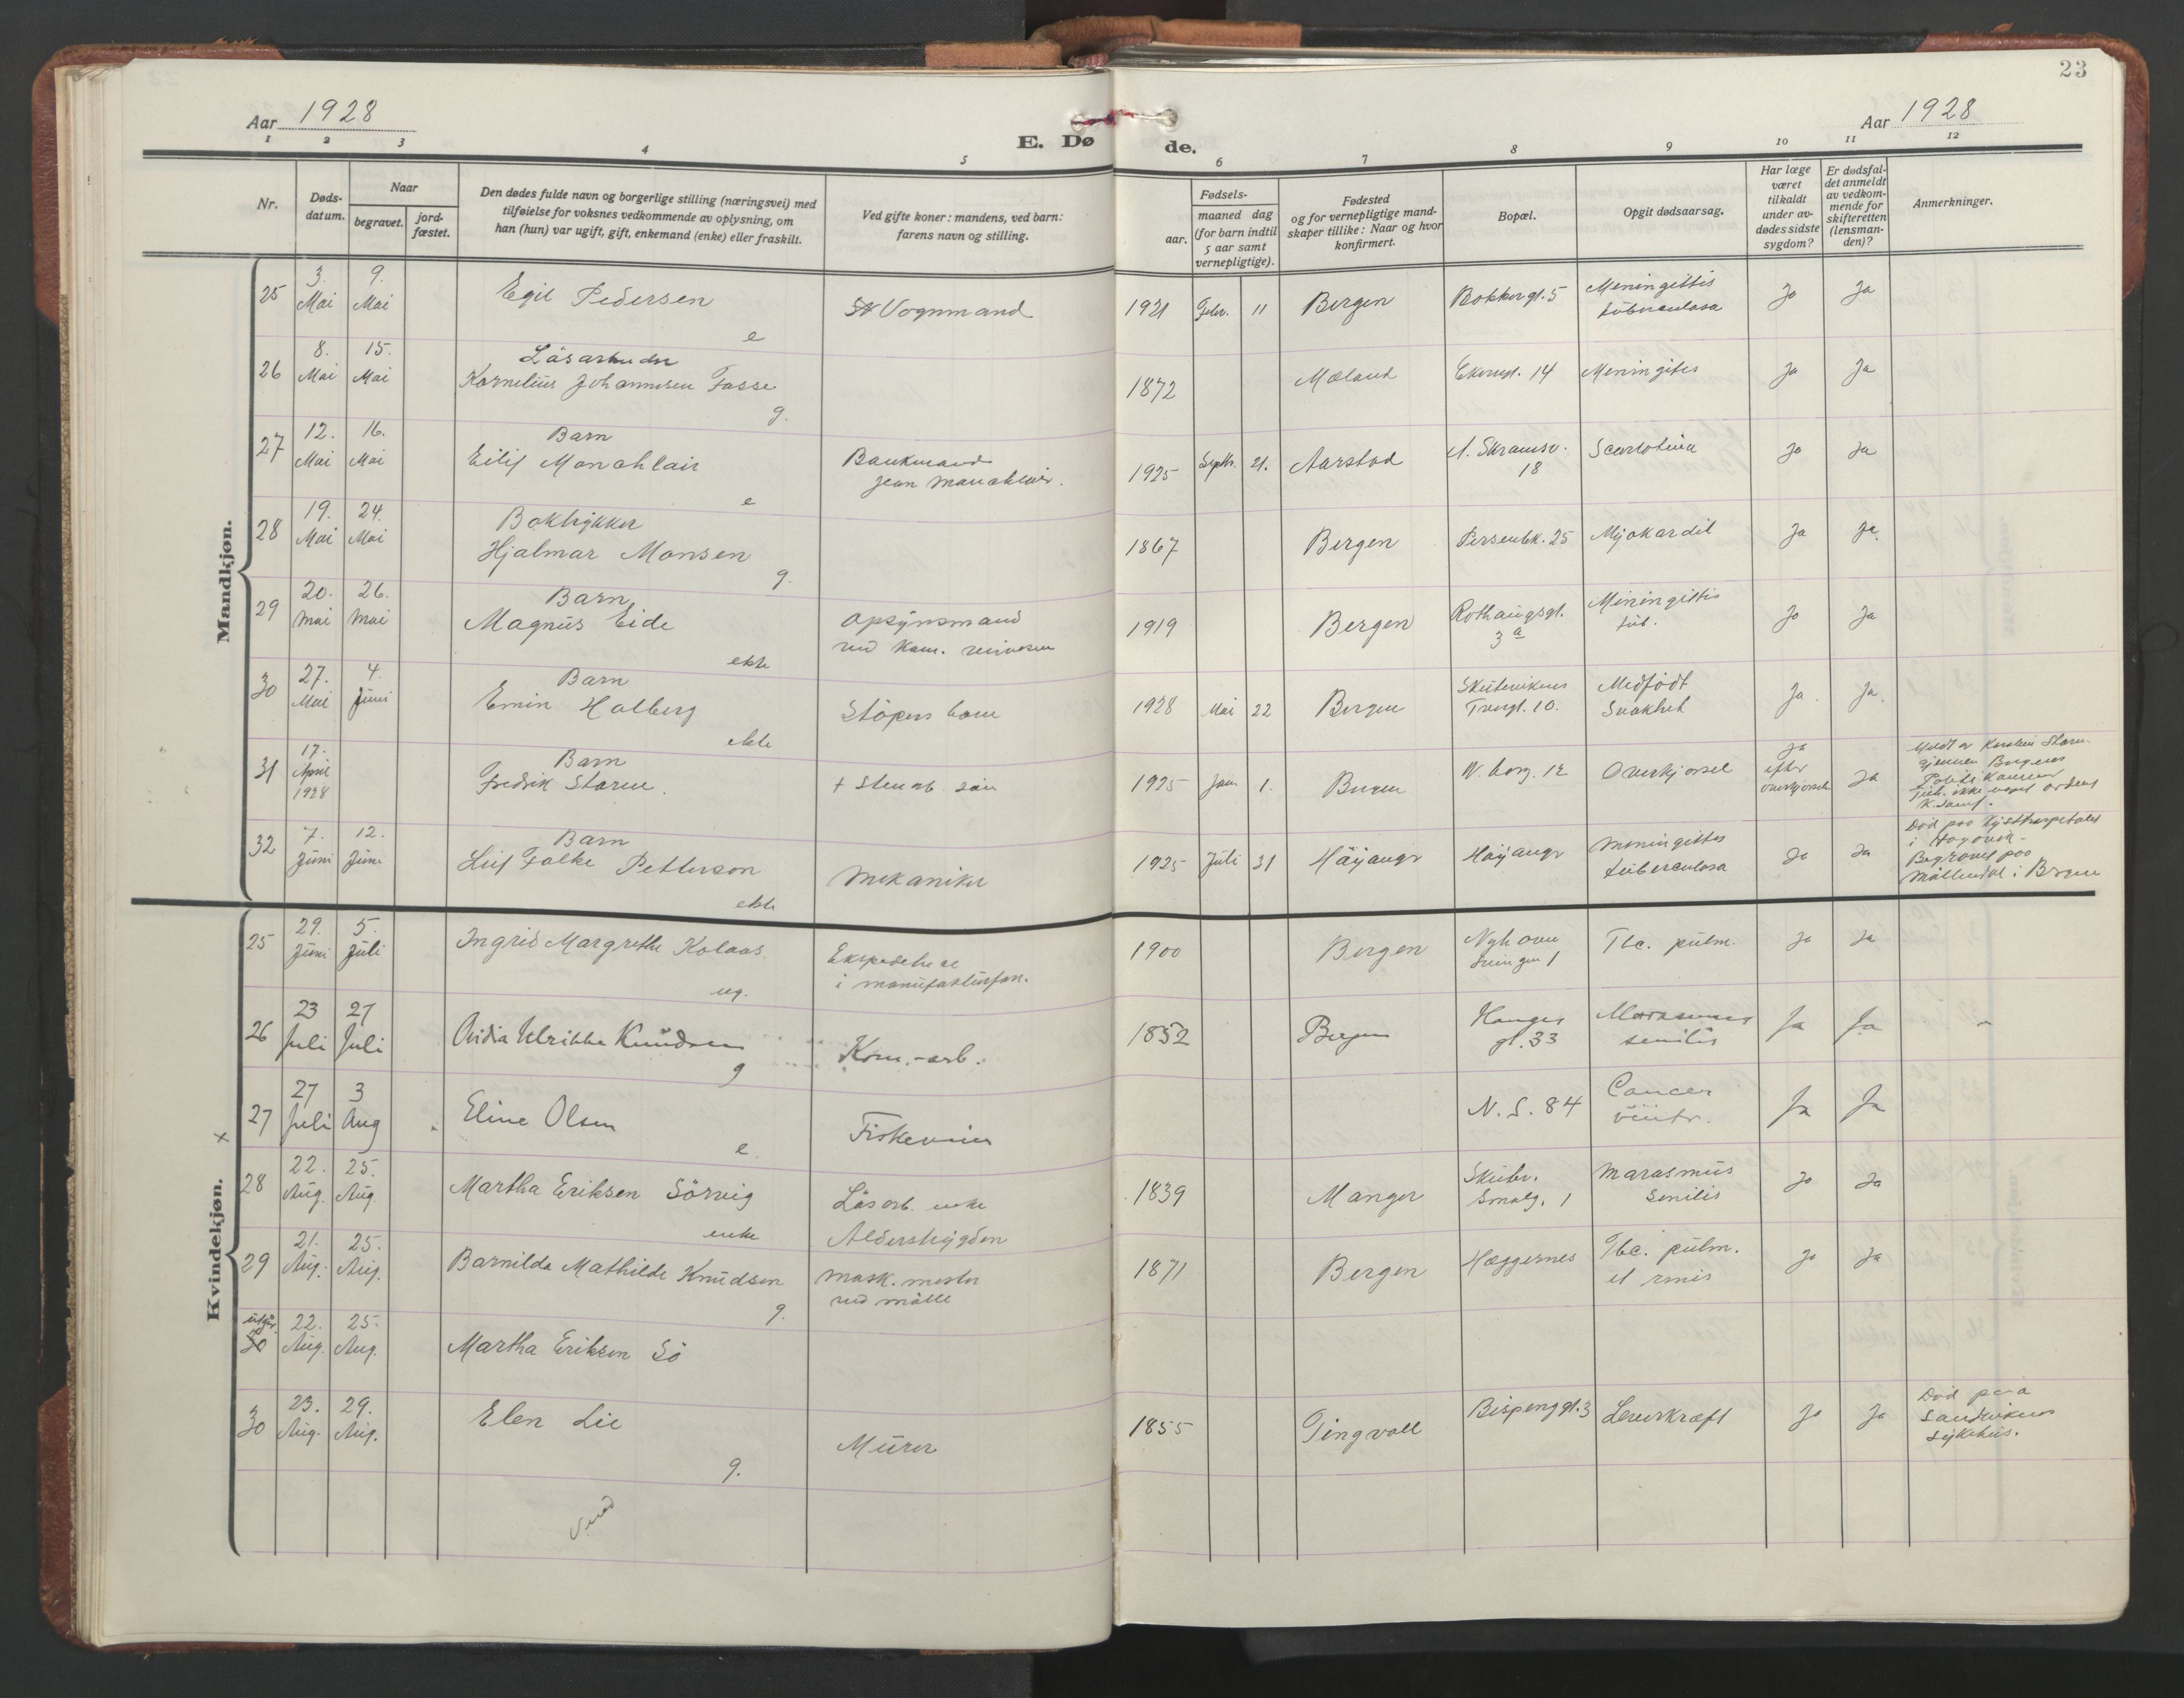 23
Aar 1928
E. Døde.
Aar 1928
1 2 3 4 5 6 7 8 9 10 11 12
Nr.
Døds-
datum.
Naar
begravet.
jord-
fæstet.
Den dødes fulde navn og borgerlige stilling (næringsvei) med
tilføielse for voksnes vedkommende av oplysning, om
han (hun) var ugift, gift, enkemand (enke) eller fraskilt.
Ved gifte koner: mandens, ved barn:
farens navn og stilling.
Fødsels-
aar.
maaned dag
(for barn indtil
5 aar samt
vernepligtige).
Fødested
og for vernepligtige mand-
skaper tillike: Naar og hvor
konfirmert.
Bopæl.
Opgit dødsaarsag.
Har læge
været
tilkaldt
under av-
dødes sidste
sygdom?
Er dødsfal-
det anmeldt
av vedkom-
mende for
skifteretten
(lensman-
den)?
Anmerkninger.
Mandkjøn.
25 3. Mai 9. Mai Egil Pedersen e Vognmand 1921 Febr. 11 Bergen Bøkkergt. 5 Meningittis tüberculosa Ja Ja
26 8. Mai 15. Mai Lösarbeider
Kornelius Johannesen Fosse g. 1872 Mæland Ekrengt. 14 Meningites Ja Ja
27 12. Mai 16. Mai Barn
Eilif Monchlair e Bankmand
Jean Monchlair. 1925 Septbr. 21. Aarstad A. Skramsv. 18 Scarlatina Ja Ja
28 19. Mai 24. Mai Boktrykker
Hjalmar Monsen g. 1867 Bergen Persenbk. 25 Myokardit Ja Ja.
29 20. Mai 26. Mai Barn
Magnüs Eide ekte Opsynsmand
ved Kom. renvesen 1919 Bergen Rothaugsgt. 3 a Meningittis tüb. Ja Ja
30 27. Mai 4. Jüni Barn
Emin Halberg ekte Stöpers barn 1928 Mai 22 Bergen Skütevikens
Tvergt. 10. Medfödt
Svakhet Ja Ja.
31 17. April 1928 Barn
Fredrik Storm. + Stenarb. sön 1925 Jan 1. Bergen N. borg. 12 Overkjørsel Ja
efter
overkjørsel Ja Meldt av
gjennem Bergens
Politikammer
ikke
K. samf.
32 7. Jüni 12. Jüni Barn
Leif Falke Petterson ekte Mekaniker 1925 Jüli 31 Höyanger Höyanger Meningittes
tüberculosa Ja Ja Död paa Kysthospitalet
i Hagavik
Begravet paa
Möllendal i Bergen
Kvindekjøn.
25 29. Jüni 5. Jüli Ingrid Margrethe Kolaas. ug. Ekspeditrise
i manufakturforr. 1900 Bergen Nyhavn
Svingen 1 Tbc. pülm. Ja Ja
26 23 Juli 27 Juli Ovidia Ulrikke Knüdsen g Kom.-arb. 1852 Bergen Hauges
gt. 33 Marasmus
senilis Ja Ja
x 27 27 Juli 3 Aug Eline Olsen e Fiskerier N. S. 84 Cancer
ventr. Ja Ja
28 22. Aug. 25. Aug. Martha Eriksen Sörvig enke Lösarb. enke
Alderstrygden 1839 Manger Skütev.
Smalg. 1 Marasmüs
Senilis Ja Ja
29 21. Aug. 25. Aug. Barnilda Mathilde Knüdsen g. Mask. mester
ved mölle 1871 Bergen Hæggernes Tbc. pülm.
et renis Ja Ja
utgår
30 22. Aug. 25. Aug. Martha Eriksen Sö
30 23. Aug. 29. Aug. Elen Lie g. Mürer 1855 Tingvoll Bispenggt. 3 Leverkræft Ja Ja Död paa
Sandvikens
sykehüs.
Vend